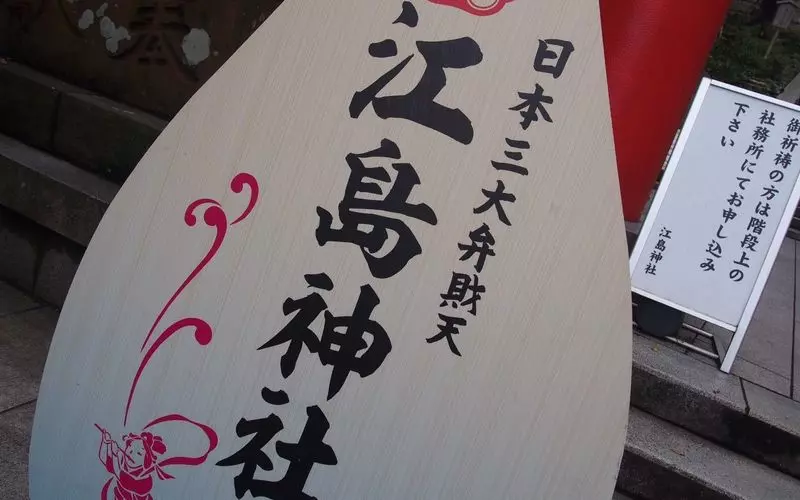 日本三大弁財天
江島神社
御祈祷の方は階段上の
社務所にてお申し込み
下さい
江島神社
奉